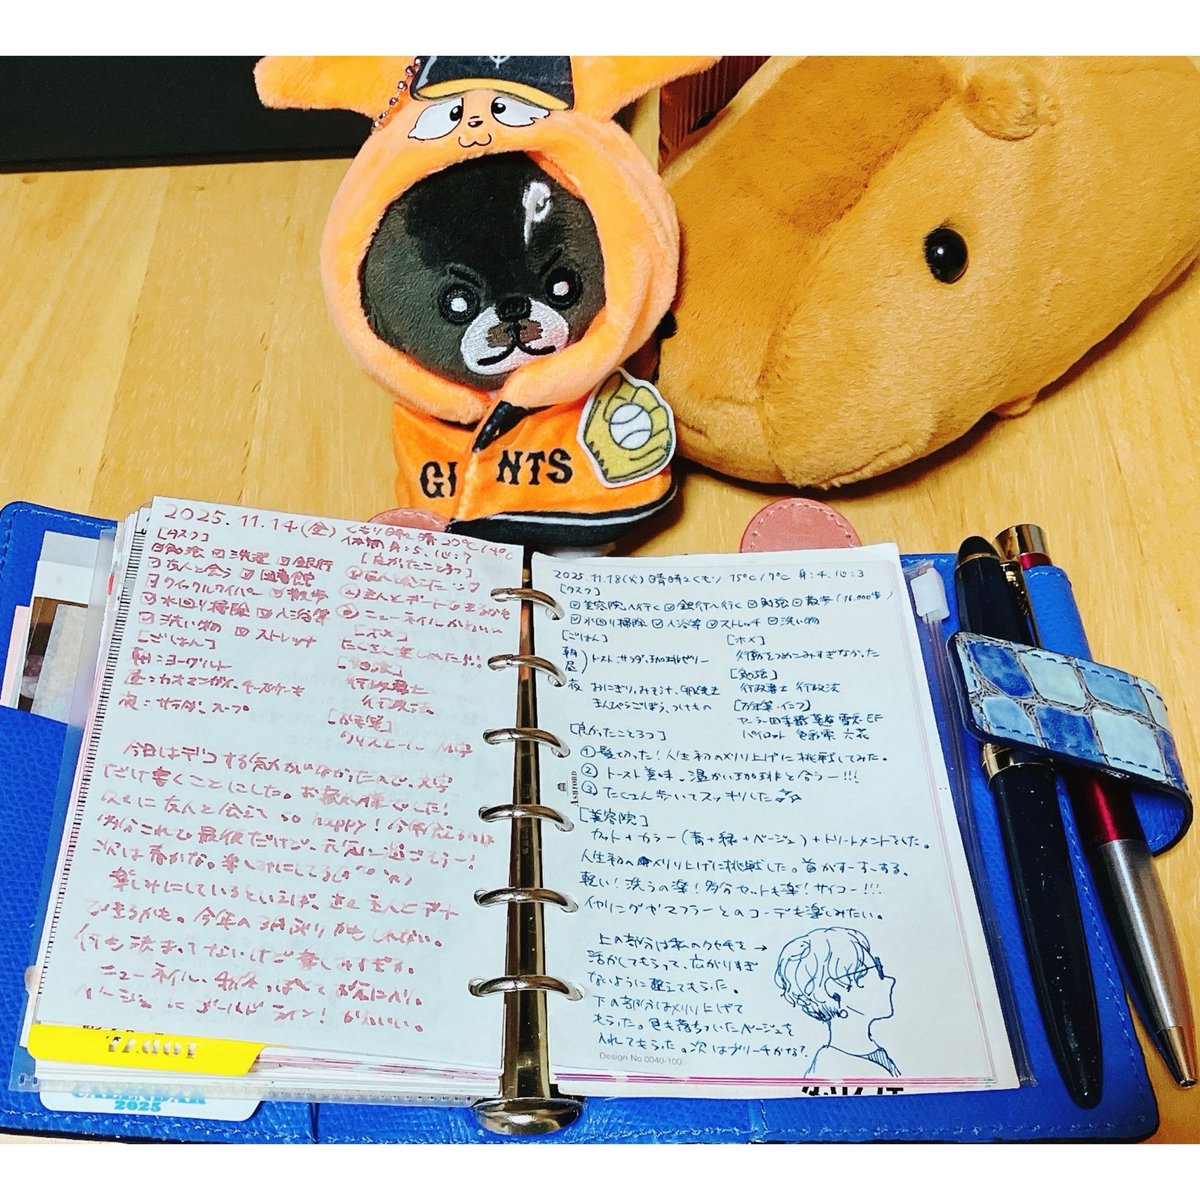 GIANTS
2025.11.14(金) くもり時々晴 20℃/9℃
体調 身:5、心:?
[タスク]
勉強 洗濯 銀行
友人と会う 図書館
クイックルワイパー 散歩
水回り掃除 入浴等
洗い物 ストレッチ
[ごはん]
朝:ヨーグルト
昼:カオマンガイ、チーズケーキ
夜:サラダ、スープ
[良かったこと3つ]
①友人と会えた
③ニューネイルかわいい
[ホメ]
たくさん楽しめた!!
[勉強]
行政書士
行政法
今日はデコする気力がなかったんで、文字
だけ書くことにした。
久々に友人と会えて so happy!
多分これで最後だけど、元気に過ごそう!
次は春かな。楽しみにしてる
楽しみにしているといえば、
できるかも。今年の3月ぶりかもしれない。
何も決まってないけど楽しみすぎる。
ニューネイル、秋冬っぽくてお気に入り。
ベージュにゴールドライン! かわいい。
CALENDAR
2025
2025.11.18(火) 晴時々くもり 15℃/7℃ 身:4、心:3
[タスク]
美容院へ行く 銀行へ行く 勉強 散歩(16,000歩)
水回り掃除 入浴等 ストレッチ 洗い物
[ごはん]
朝
昼 トースト サラダ、珈琲ゼリー
夜 おにぎり、みそ汁、
きんぴらごぼう、つけもの
[ホメ]
行動をつめこみすぎなかった
[勉強]
行政書士 行政法
[万年筆・インク]
セーラー四季織
パイロット 色彩雫
[良かったこと3つ]
①髪切った!人生初の刈り上げに挑戦してみた。
②トースト美味。温かい珈琲と合う ー!!!
③たくさん歩いてスッキリした
ASHFORD
[美容院]
カット+カラー(青+緑+ベージュ)+トリートメントをした。
人生初の刈り上げに挑戦した。首がすーすーする。
軽い! 洗うの楽! 多分セットも楽! サイコー!!!
イヤリングやマフラーとのコーデも楽しみたい。
上の部分は私のクセ毛を→
活かしてもらって、広がりすぎ
ないように整えてもらった。
下の部分は刈り上げて
もらった。色も落ちついたベージュを
入れてもらった。次はブリーチかな?
Design No.0040-100